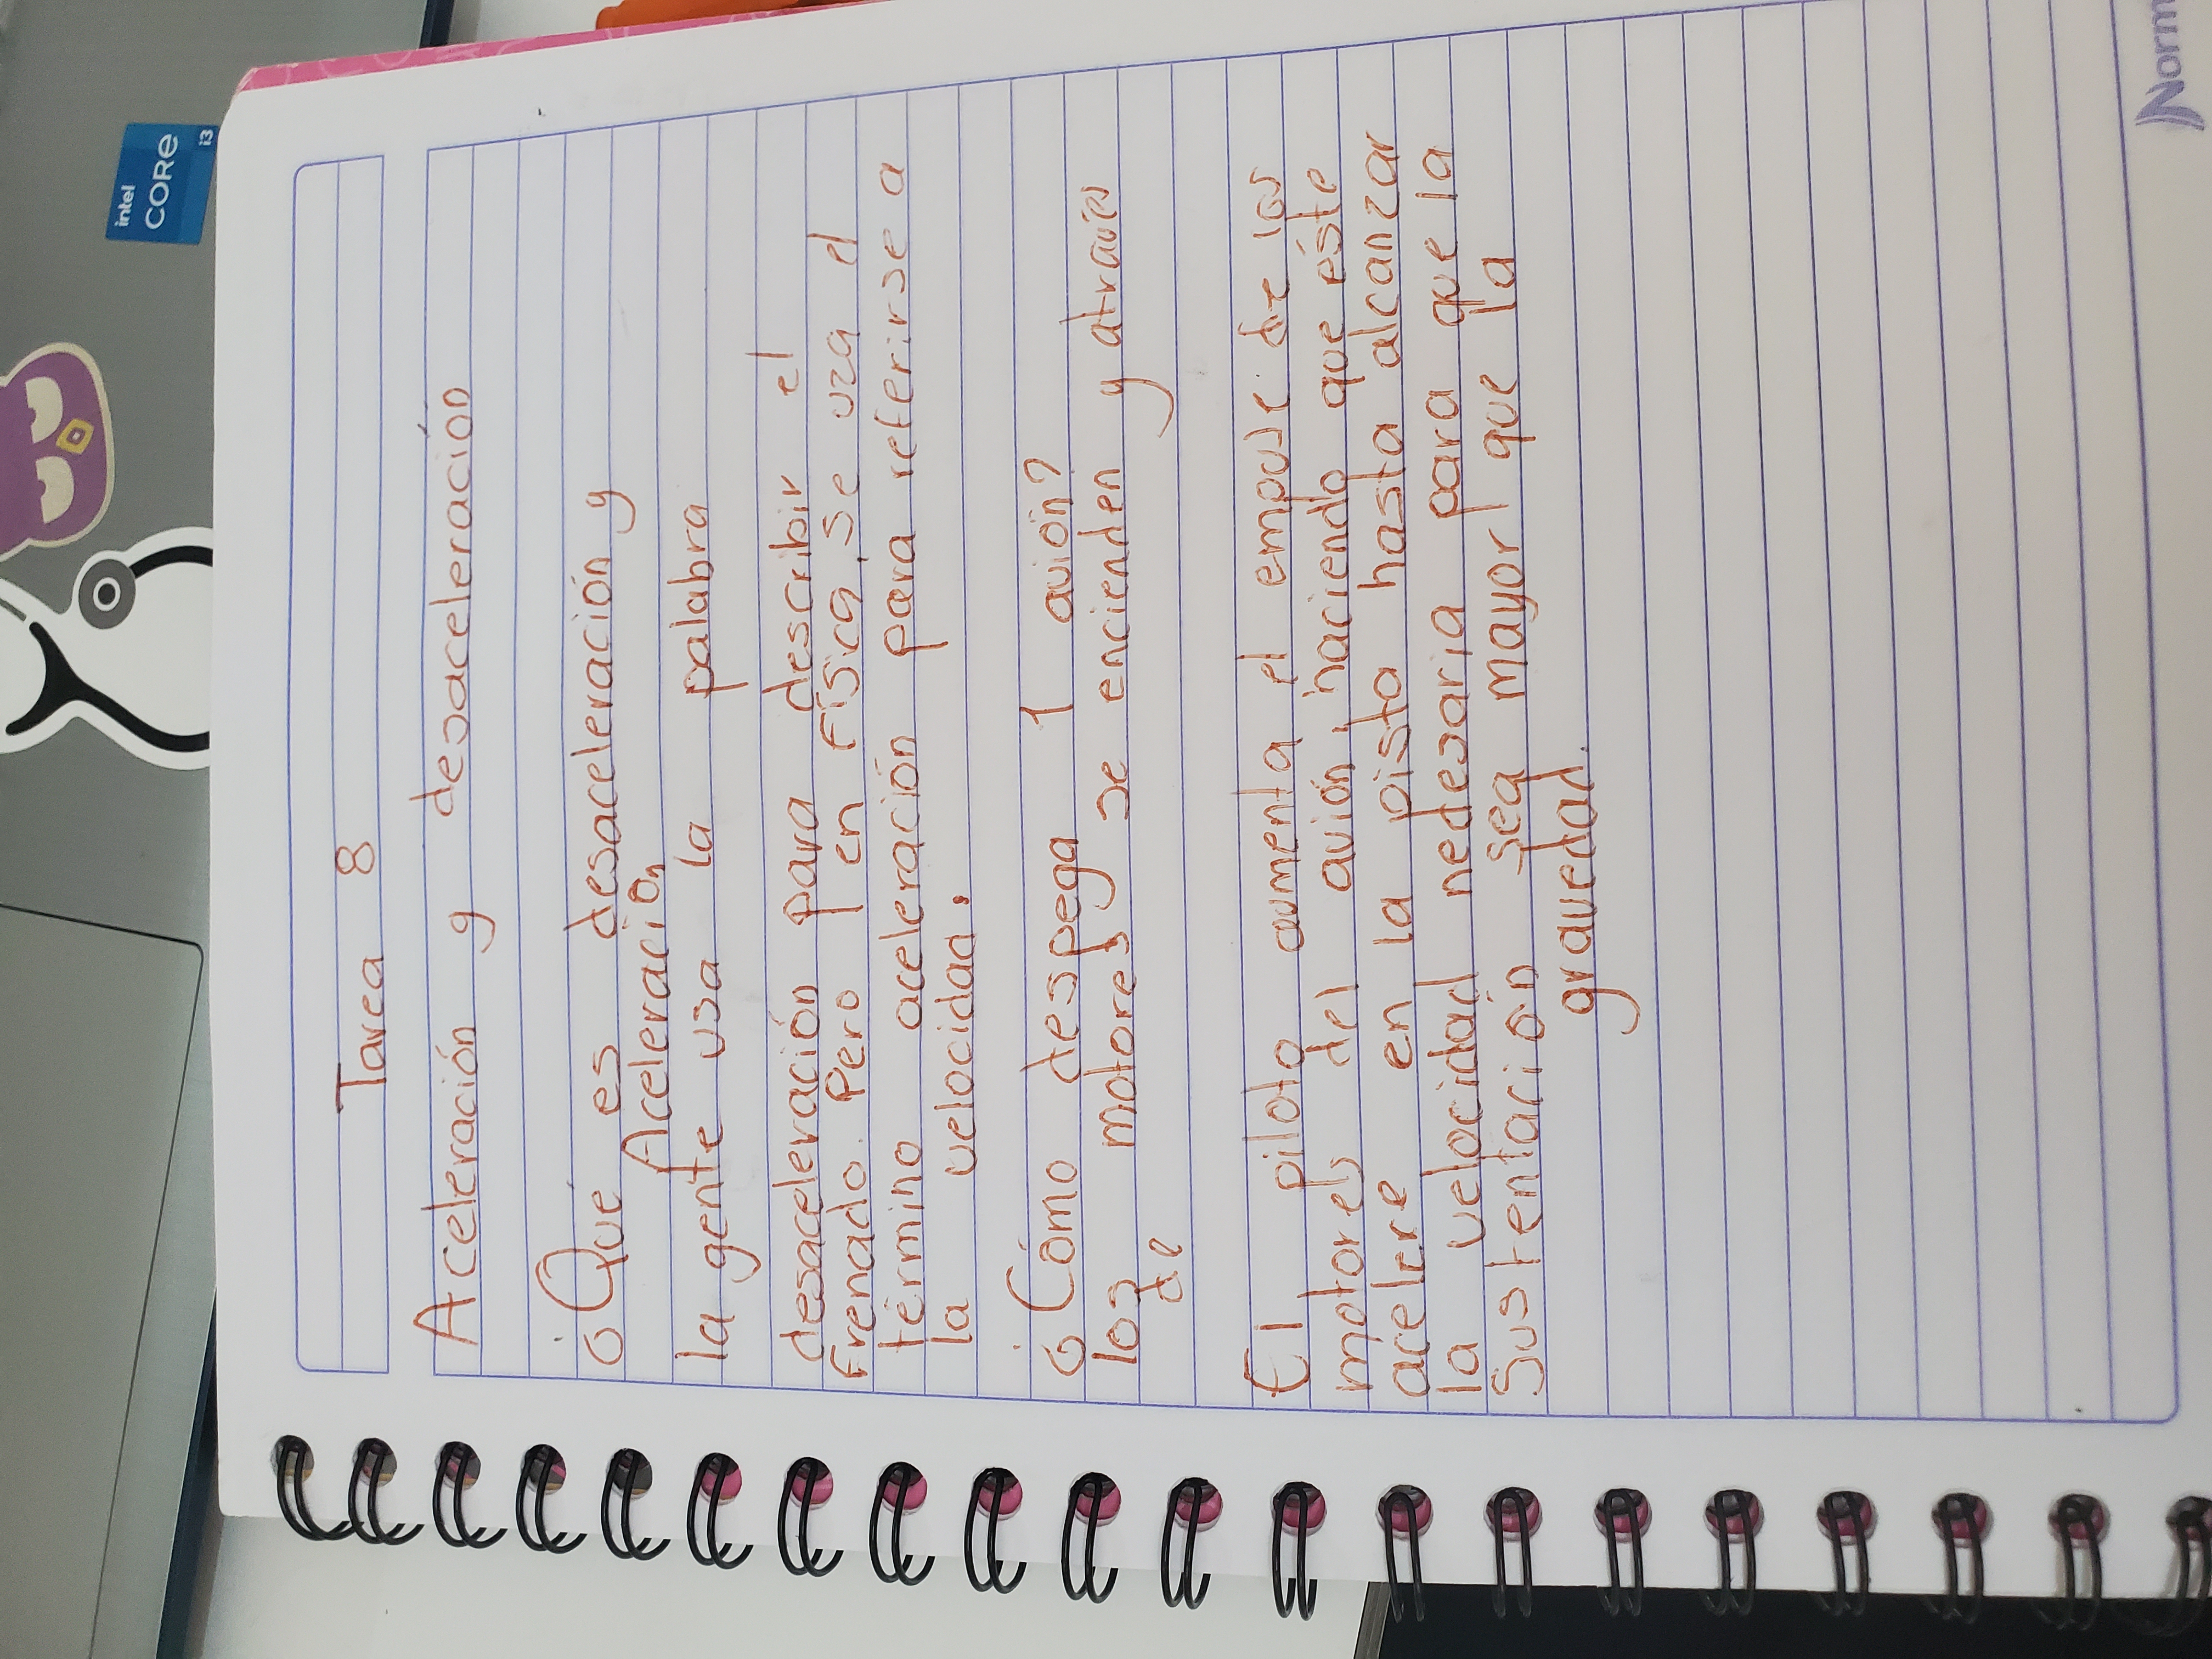 Tarea 8
Aceleración y desaceleración
¿Qué es desaceleración y
Aceleración
la gente usa la palabra
desaceleración para describir el
Frenado. Pero en Física, se uza el
término aceleración para referirse a
la velocidad.
¿Cómo despega 1 avión?
los motores se encienden y atravéz
de
El piloto aumenta el empuse de los
motores del avión, haciendo que éste
acelere en la pista hasta alcanzar
la velocidad nedesaria para que la
Sustentación sea mayor que la
gravedad.
Norm
intel
CORE
i3